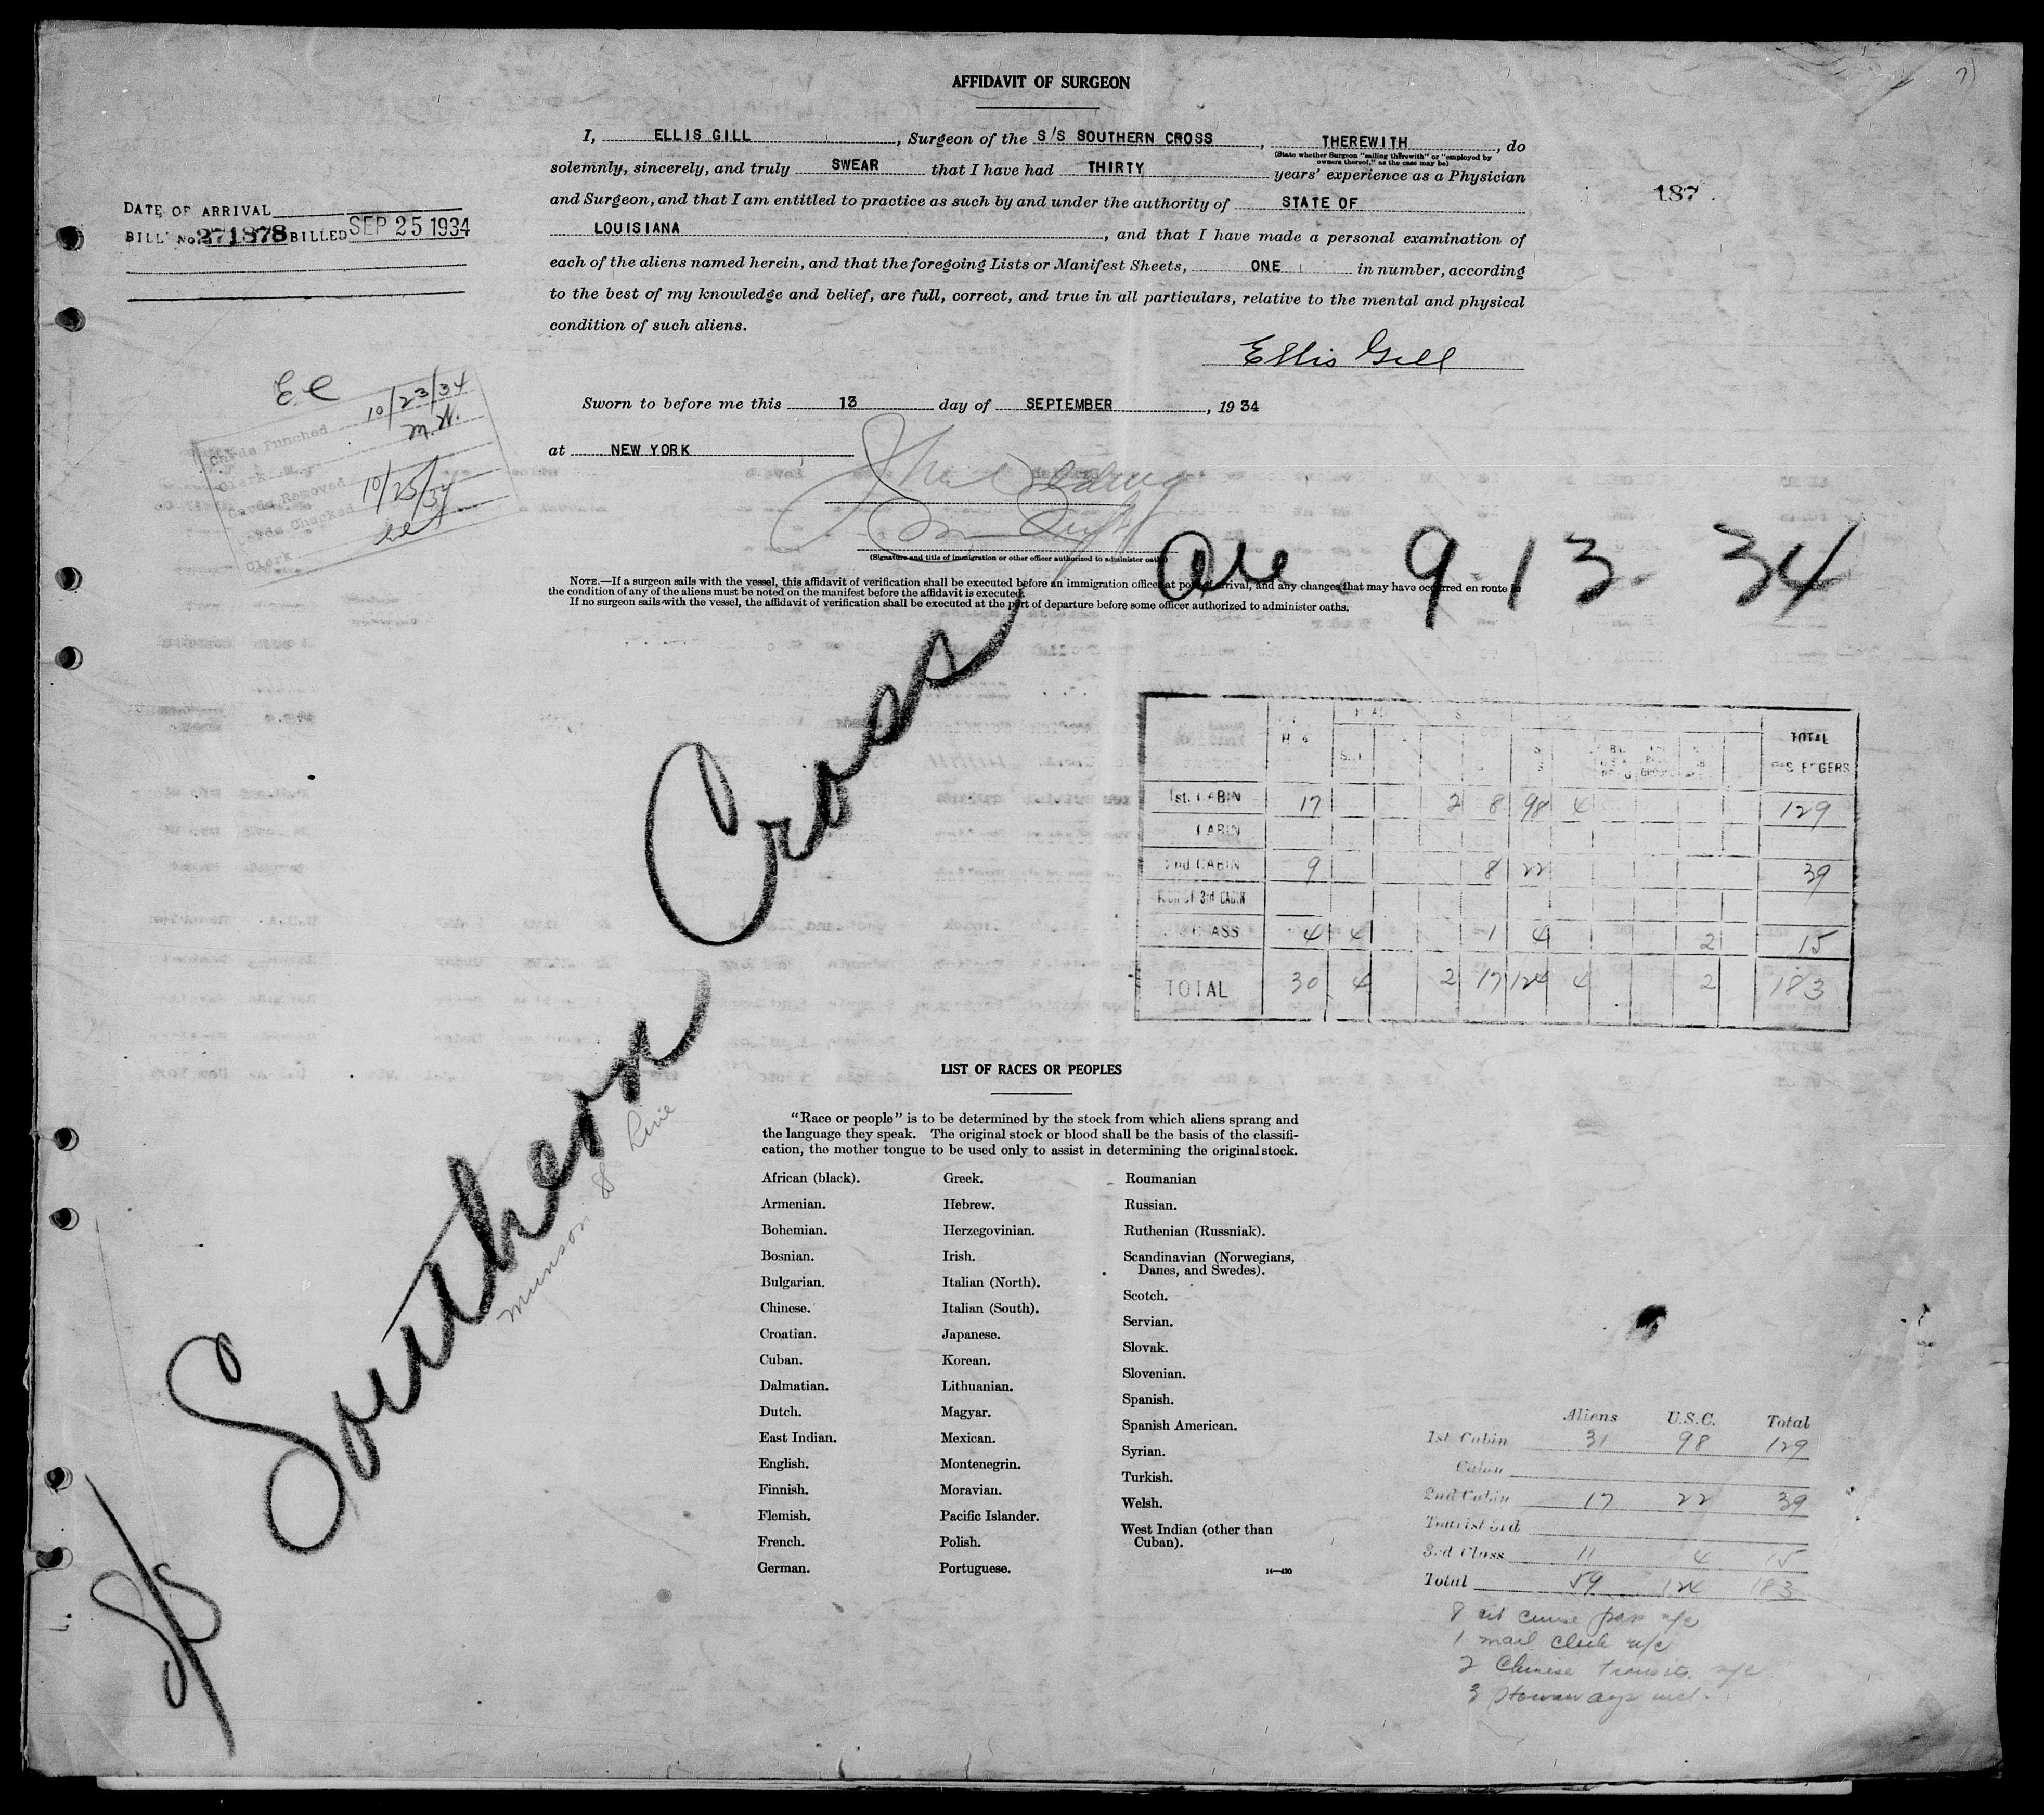 AFFIDAVIT OF SURGEON
I, ELLIS GILL, Surgeon of the S/S SOUTHERN CROSS, THEREWITH, do
(State whether Surgeon "sailing therewith" or "employed by
owners thereof," as the case may be)
solemnly, sincerely, and truly SWEAR that I have had THIRTY years' experience as a Physician
and Surgeon, and that I am entitled to practice as such by and under the authority of STATE OF
LOUISIANA, and that I have made a personal examination of
each of the aliens named herein, and that the foregoing Lists or Manifest Sheets, ONE in number, according
to the best of my knowledge and belief, are full, correct, and true in all particulars, relative to the mental and physical
condition of such aliens.
Ellis Gill
Sworn to before me this 13 day of SEPTEMBER, 1934
at NEW YORK
(Signature and title of immigration or other officer authorized to administer oaths)
NOTE.—If a surgeon sails with the vessel, this affidavit of verification shall be executed before an immigration officer at port of arrival, and any changes that may have occurred en route in
the condition of any of the aliens must be noted on the manifest before the affidavit is executed.
If no surgeon sails with the vessel, the affidavit of verification shall be executed at the port of departure before some officer authorized to administer oaths.
187
DATE OF ARRIVAL
BILL No. 271878 BILLED SEP 25 1934
Cards Punched 10/23/34
Clerk M.W.
Cards Removed
Cards Checked 10/25/34
Clerk
9-13-34
S/S Southern Cross
Munson S Line
TOTAL
PASSENGERS
1st. CABIN 17 2 8 98 4 129
CABIN
2nd CABIN 9 8 22 39
3rd CABIN
CLASS 4 4 1 4 2 15
TOTAL 30 4 2 17 124 4 2 183
LIST OF RACES OR PEOPLES
"Race or people" is to be determined by the stock from which aliens sprang and
the language they speak. The original stock or blood shall be the basis of the classifi-
cation, the mother tongue to be used only to assist in determining the original stock.
African (black).
Armenian.
Bohemian.
Bosnian.
Bulgarian.
Chinese.
Croatian.
Cuban.
Dalmatian.
Dutch.
East Indian.
English.
Finnish.
Flemish.
French.
German.
Greek.
Hebrew.
Herzegovinian.
Irish.
Italian (North).
Italian (South).
Japanese.
Korean.
Lithuanian.
Magyar.
Mexican.
Montenegrin.
Moravian.
Pacific Islander.
Polish.
Portuguese.
Roumanian
Russian.
Ruthenian (Russniak).
Scandinavian (Norwegians,
Danes, and Swedes).
Scotch.
Servian.
Slovak.
Slovenian.
Spanish.
Spanish American.
Syrian.
Turkish.
Welsh.
West Indian (other than
Cuban).
14—430
Aliens U.S.C. Total
1st Cabin 31 98 129
Cabin
2nd Cabin 17 22 39
Tourist 3rd
3rd Class 11 4 15
Total 59 124 183
8 cruise pass
1 mail clerk
2 Chinese transits
3 Stowaways incl.